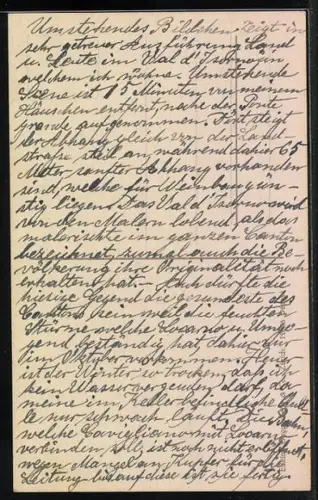 Umstehendes Bildchen zeigt in
sehr getreuer Ausführung Land
u. Leute im Val d'Isorno in
welchem ich wohne. Umstehende
Scene ist 15 Minuten von meinem
Häuschen entfernt, nache der Ponte
grande aufgenommen. Fort steigt
der Abhang gleich von der Land-
straße steil an, während dahier 65
Meter sanfter Abhang vorhanden
sind, welche für Weinbau gün-
stig liegen. Das Val d Isorno wird
von den Malern lobend, als das
malerischte im ganzen Canton
bezeichnet, zumal auch die Be-
völkerung ihre Originalität noch
erhalten hat. – Auch dürfte die
hiesige Gegend die gesundeste des
Cantons sein weil die feuchten
Stürme welche Locarno u. Umge-
gend beständig hat dahier nur
im Oktober vorkommen. Heuer
ist der Winter so trocken, daß ich
kein Wasser vergeuden darf, da
meine im Keller befindliche Quel-
le nur schwach läuft. Die Bahn,
welche Cavigliano mit Locarno
verbinden soll, ist noch nicht eröffnet,
wegen Mangel an Kupfer für die
Leitung, bis auf diese ist sie fertig.